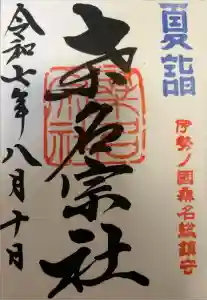 夏詣
伊勢ノ國桑名総鎮守
桑名宗社
令和七年八月十日